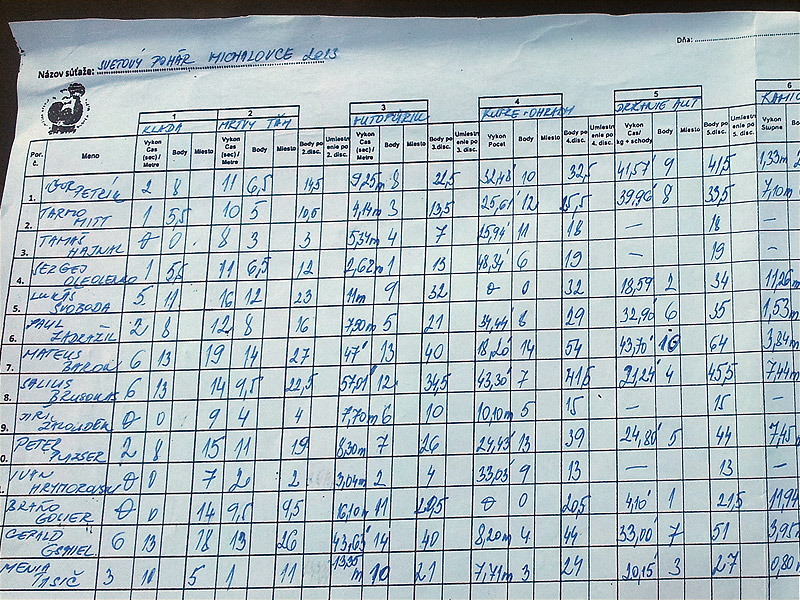 Dňa:
Názov súťaže: SVETOVÝ POHÁR MICHALOVCE 2013
1 2 3 4 5 6
KLADA MŔTVY ŤAH DRŽANIE AUT
Por. č. Meno Vykon Čas (sec) / Metre Body Miesto Vykon Čas (sec) / Metre Body Miesto Body po 2.disc. Umiestnenie po 2. disc. Vykon Čas (sec) / Metre Body Miesto Body po 3.disc. Umiestnenie po 3. disc. Vykon Pocet Body Miesto Body po 4.disc. Umiestnenie po 4. disc. Vykon Čas/ kg + schody Body Miesto Body po 5.disc. Umiestnenie po 5. disc. Vykon Stupne
1. IGOR PETRÍK 2 8 11 6,5 14,5 9,25m 8 22,5 32,48' 10 32,5 41,57' 9 41,5 1,33m
2. TARMO MITT 1 5,5 10 5 10,5 4,14m 3 13,5 25,61' 12 25,5 39,96' 8 33,5 7,10m
3. TAMAS HAJNAL 0 0 8 3 3 5,34m 4 7 25,94' 11 18 — 18 —
4. SERGEJ 1 5,5 11 6,5 12 2,62m 1 13 48,34' 6 19 — 19 —
5. LUKÁŠ SVOBODA 5 11 16 12 23 11m 9 32 0 0 32 18,59 2 34 11,26m
6. PAUL ZADRAŽIL 2 8 12 8 16 7,50m 5 21 34,44' 8 29 32,90' 6 35 1,53m
7. MATEUS BARON 6 13 19 14 27 47' 13 40 18,20' 14 54 43,70' 10 64 3,84m
8. SALIUS BRUSOKAS 6 13 14 9,5 22,5 57,01' 12 34,5 43,30' 7 41,5 21,24' 4 45,5 7,44m
9. JIRI 0 0 9 4 4 7,70m 6 10 10,10m 5 15 — 15 —
PETER 2 8 15 11 19 8,30m 7 26 24,43' 13 39 24,80' 5 44 7,45m
IVAN 0 0 7 2 2 3,04m 2 4 33,03 9 13 — 13 —
BRAŇO GOLIER 0 0 14 9,5 9,5 16,10m 11 20,5 0 0 20,5 4,10' 1 21,5 11,94
GERALD GSCHIEL 6 13 18 13 26 43,63' 14 40 8,20m 4 44 33,00' 7 51 3,95m
TASIČ 3 10 5 1 11 13,95m 10 21 7,71m 3 24 20,15' 3 27 0,80m